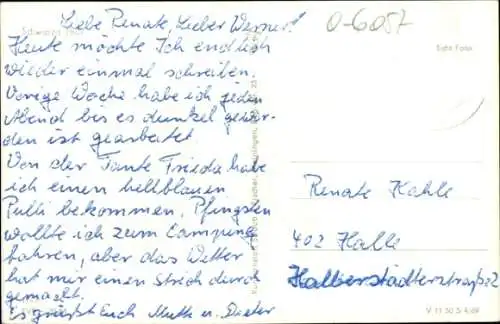 Liebe Renate, Lieber Werner!
Heute möchte Ich endlich
wieder einmal schreiben.
Vorige Woche habe ich jeden
Abend bis es dunkel gewor-
den ist gearbeitet.
Von der Tante Frieda habe
ich einen hellblauen
Pulli bekommen. Pfingsten
wollte ich zum Camping
fahren, aber das Wetter
hat mir einen Strich durch
gemacht.
Es grüßt Euch Mutti u. Dieter
0-6057
Echt Foto
Renate Kahle
402 Halle
Halberstädterstraße 2
V 11 50 S 4/69